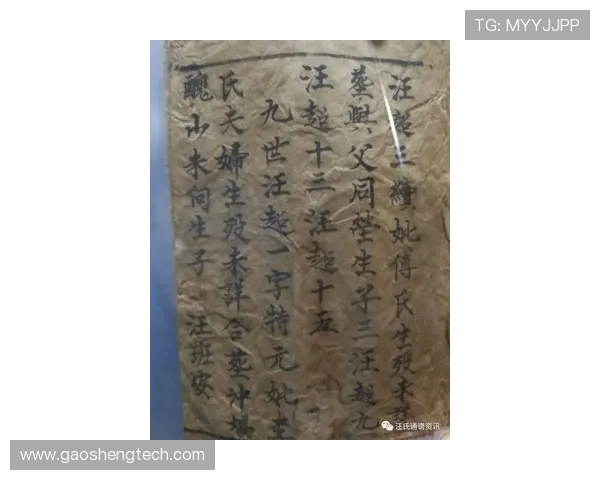 TG: MYYJJPP
汪超三續妣傅氏生歿未詳
葢與父同塋生子三汪超九
汪超十三汪超十五
九世汪超一字特元妣李
氏夫婦生歿未詳合葢沖塘
醜山未向生子 汪班安
汪氏通谱资讯
www.gaoshengtech.com